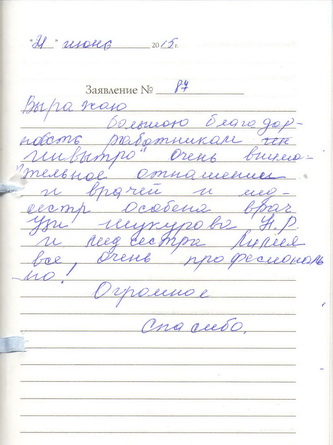 "21" июнь 2015г.
Заявление № 87
Выражаю
большою благодар-
ность работникам "Ин
Инвитро" очень внима-
тельное отнашение
и врачей и мед-
сестр особена врач
узи Шукурова Н.Р.
и мед сестра Лилия
все, очень професиональ
но!
Огромное
спасибо.